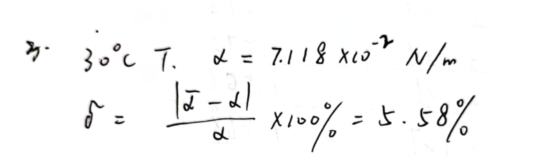 30°C 下. α = 7.118 ×10⁻² N/m
δ = |ᾱ - α| / α ×100% = 5.58%